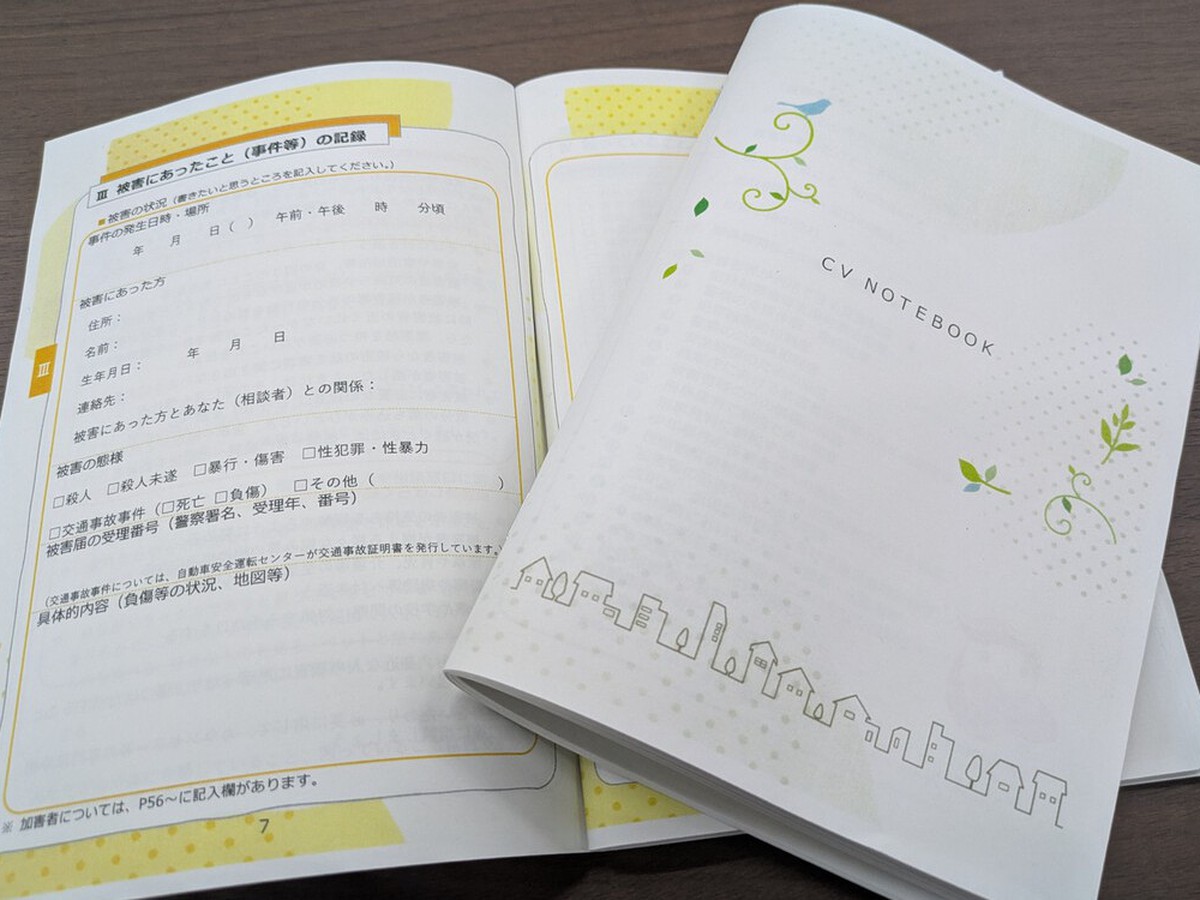 Ⅲ 被害にあったこと（事件等）の記録
■被害の状況（書きたいと思うところを記入してください。）
事件の発生日時・場所
年 月 日（ ） 午前・午後 時 分頃
被害にあった方
住所：
名前：
生年月日： 年 月 日
連絡先：
被害にあった方とあなた（相談者）との関係：
被害の態様
□殺人 □殺人未遂 □暴行・傷害 □性犯罪・性暴力
□交通事故事件（□死亡 □負傷） □その他（ ）
被害届の受理番号（警察署名、受理年、番号）
（交通事故事件については、自動車安全運転センターが交通事故証明書を発行しています。）
具体的内容（負傷等の状況、地図等）
※ 加害者については、P56～に記入欄があります。
7
Ⅲ
CV NOTEBOOK